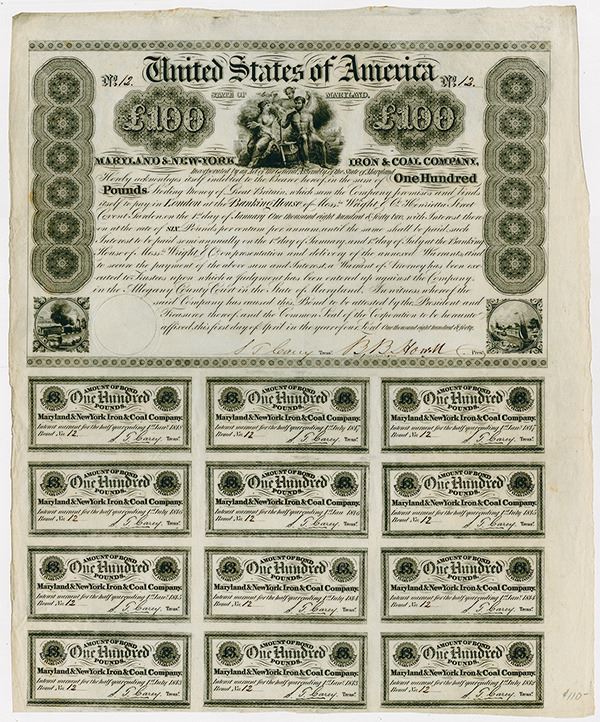 United States of America
No. 12. No. 12.
STATE OF MARYLAND.
£100 £100
MARYLAND & NEW-YORK IRON & COAL COMPANY,
Incorporated by an Act of the General Assembly of the State of Maryland
Hereby acknowledges itself indebted to the Bearer hereof, in the sum of One Hundred
Pounds Sterling Money of Great Britain, which sum the Company promises and binds
itself to pay in London at the Banking House of Messrs. Wright & Co. Henrietta Street
Covent Garden on the 1st day of January One thousand eight hundred & Sixty two, with Interest there
on at the rate of SIX Pounds per centum per annum, until the same shall be paid, such
Interest to be paid semi annually on the 1st day of January, and 1st day of July at the Banking
House of Messrs. Wright & Co. on presentation and delivery of the annexed Warrants, And
to secure the payment of the above sum and Interest, a Warrant of Attorney has been exe
cuted to Trustees upon which a judgment has been entered up against the Company,
in the Allegany County Court in the State of Maryland. In witness whereof the
said Company has caused this Bond to be attested by the President and
Treasurer thereof, and the Common Seal of the Corporation to be hereunto
affixed, this first day of April in the year of our Lord One thousand eight hundred & fifty.
S. T. Carey Treasr. B. B. Howell Prest.
AMOUNT OF BOND
£3. One Hundred £3.
POUNDS.
Maryland & New York Iron & Coal Company.
Interest warrant for the half year ending 1st Janry. 1848
Bond No. 12 S. T. Carey, Treasr.
AMOUNT OF BOND
£3. One Hundred £3.
POUNDS.
Maryland & New York Iron & Coal Company.
Interest warrant for the half year ending 1st July 1847
Bond No. 12 S. T. Carey, Treasr.
AMOUNT OF BOND
£3. One Hundred £3.
POUNDS.
Maryland & New York Iron & Coal Company.
Interest warrant for the half year ending 1st Janry. 1847
Bond No. 12 S. T. Carey, Treasr.
AMOUNT OF BOND
£3. One Hundred £3.
POUNDS.
Maryland & New York Iron & Coal Company.
Interest warrant for the half year ending 1st July 1846
Bond No. 12 S. T. Carey, Treasr.
AMOUNT OF BOND
£3. One Hundred £3.
POUNDS.
Maryland & New York Iron & Coal Company.
Interest warrant for the half year ending 1st Janry. 1846
Bond No. 12 S. T. Carey, Treasr.
AMOUNT OF BOND
£3. One Hundred £3.
POUNDS.
Maryland & New York Iron & Coal Company.
Interest warrant for the half year ending 1st July 1845
Bond No. 12 S. T. Carey, Treasr.
AMOUNT OF BOND
£3. One Hundred £3.
POUNDS.
Maryland & New York Iron & Coal Company.
Interest warrant for the half year ending 1st Janry. 1845
Bond No. 12 S. T. Carey, Treasr.
AMOUNT OF BOND
£3. One Hundred £3.
POUNDS.
Maryland & New York Iron & Coal Company.
Interest warrant for the half year ending 1st July 1844
Bond No. 12 S. T. Carey, Treasr.
AMOUNT OF BOND
£3. One Hundred £3.
POUNDS.
Maryland & New York Iron & Coal Company.
Interest warrant for the half year ending 1st Janry. 1844
Bond No. 12 S. T. Carey, Treasr.
AMOUNT OF BOND
£3. One Hundred £3.
POUNDS.
Maryland & New York Iron & Coal Company.
Interest warrant for the half year ending 1st July 1843
Bond No. 12 S. T. Carey, Treasr.
AMOUNT OF BOND
£3. One Hundred £3.
POUNDS.
Maryland & New York Iron & Coal Company.
Interest warrant for the half year ending 1st Janry. 1843
Bond No. 12 S. T. Carey, Treasr.
AMOUNT OF BOND
£3. One Hundred £3.
POUNDS.
Maryland & New York Iron & Coal Company.
Interest warrant for the half year ending 1st July 1842
Bond No. 12 S. T. Carey, Treasr.
$110-